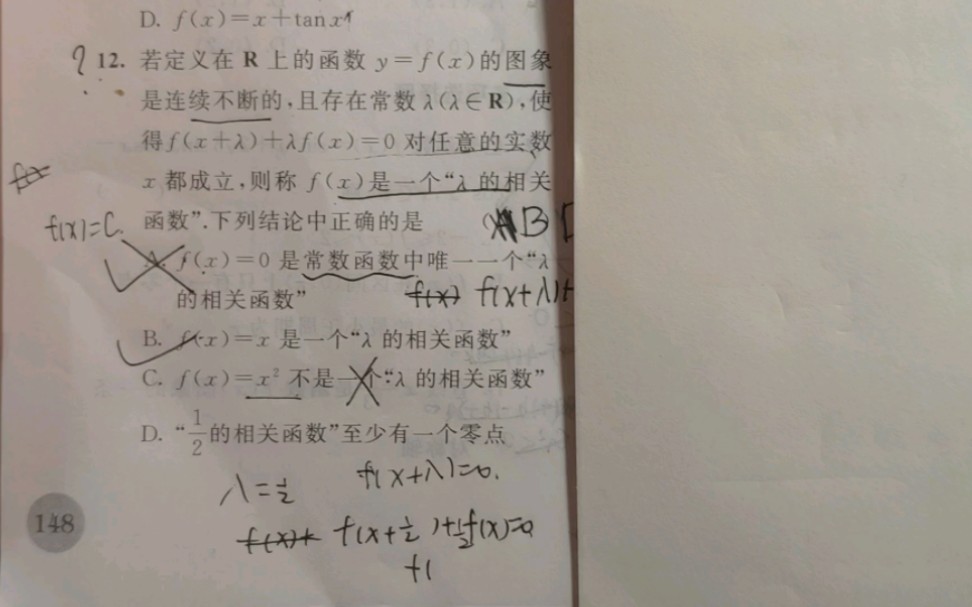 D. f(x)=x+tan x
? 12. 若定义在 R 上的函数 y=f(x)的图象
是连续不断的,且存在常数 λ(λ∈R),使
得 f(x+λ)+λf(x)=0 对任意的实数
x 都成立,则称 f(x)是一个“λ 的相关
f(x)=C. 函数”.下列结论中正确的是 AB
A. f(x)=0 是常数函数中唯一一个“λ
的相关函数” f(x) f(x+λ)+
B. f(x)=x 是一个“λ 的相关函数”
C. f(x)=x² 不是一个“λ 的相关函数”
D. “1/2的相关函数”至少有一个零点
λ=1/2 f(x+λ)=0.
148
f(x)+ f(x+1/2)+1/2f(x)=0